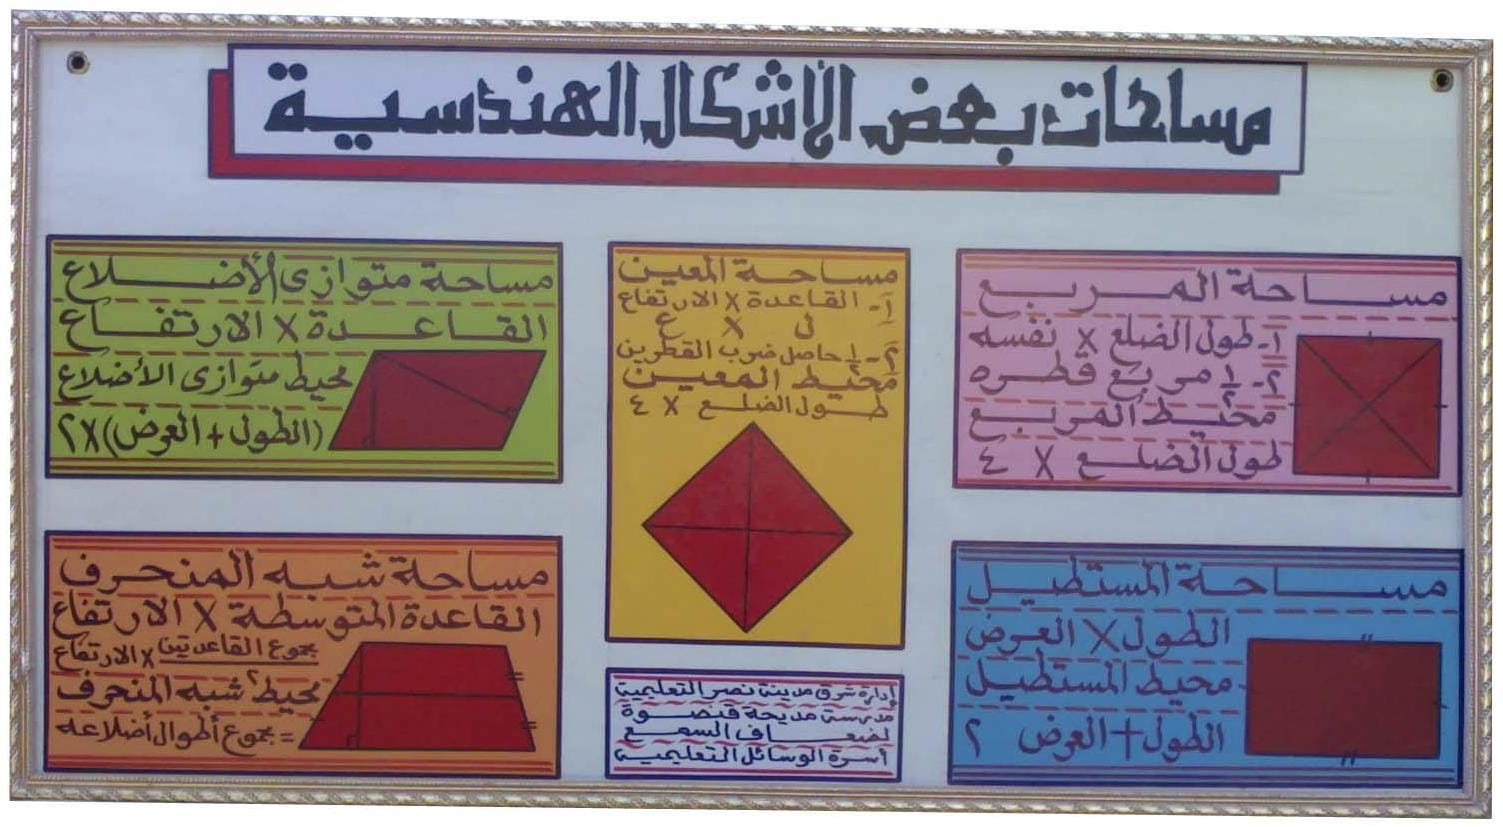 مساحات بعض الأشكال الهندسية
مساحة المربع
١- طول الضلع × نفسه
٢- ½ مربع قطره
محيط المربع
طول الضلع × ٤
مساحة المعين
١- القاعدة × الارتفاع
ل × ع
٢- ½ حاصل ضرب القطرين
محيط المعين
طول الضلع × ٤
مساحة متوازى الأضلاع
القاعدة × الارتفاع
محيط متوازى الأضلاع
(الطول + العرض) × ٢
مساحة المستطيل
الطول × العرض
محيط المستطيل
الطول + العرض ٢
مساحة شبه المنحرف
القاعدة المتوسطة × الارتفاع
مجموع القاعديتن × الارتفاع
٢
محيط شبه المنحرف
= مجموع أطوال أضلاعه
إدارة شرق مدينة نصر التعليمية
مدرسة مديحة قنصوة
لضعاف السمع
أسرة الوسائل التعليمية